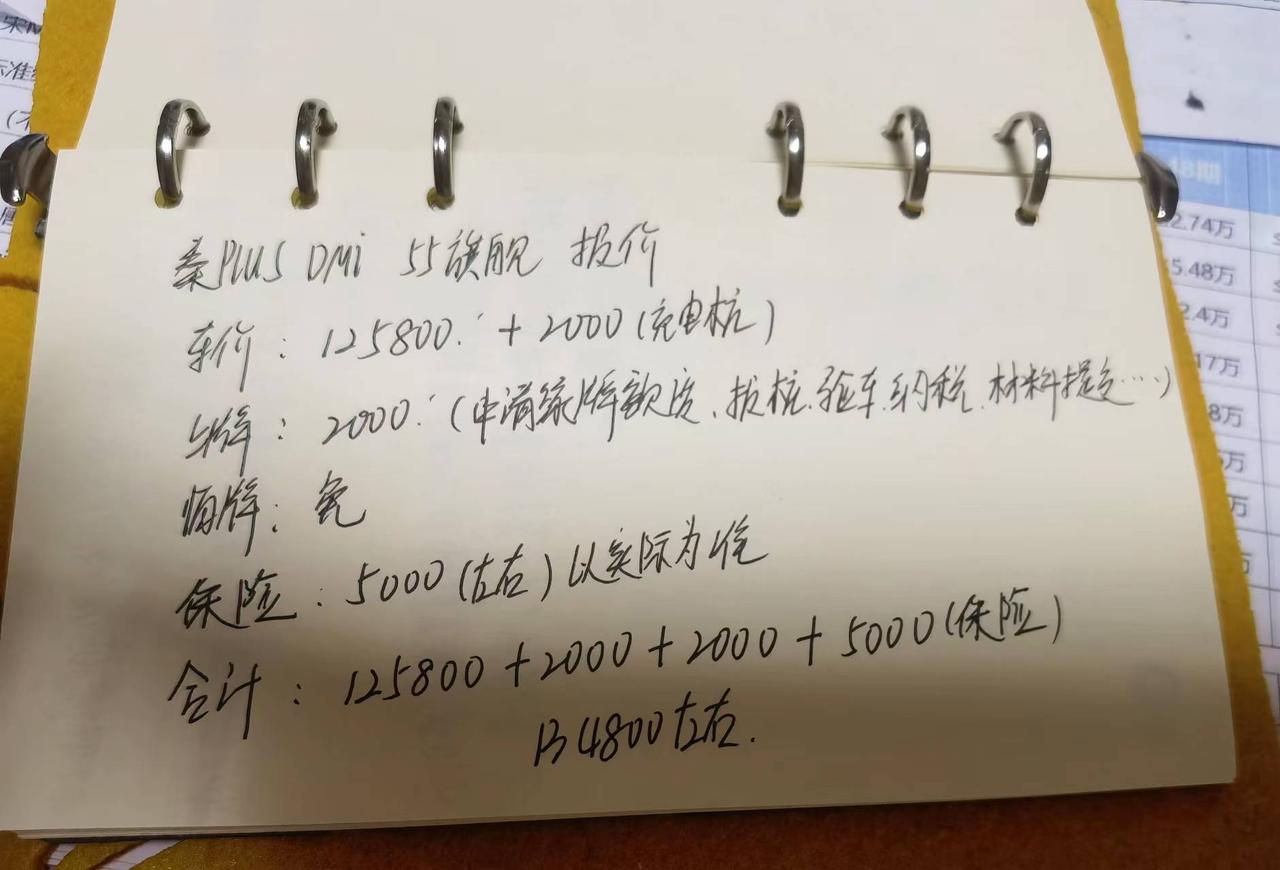 秦PLUS DMi 55旗舰 报价
车价: 125800. + 2000(充电桩)
上牌: 2000. (申请绿牌额度、报桩.验车.纳税.材料提交…)
临牌: 免
保险: 5000(左右)以实际为准
合计: 125800+2000+2000+5000(保险)
134800左右.
48期
2.74万
5.48万
2.4万
17万
8万
万
万